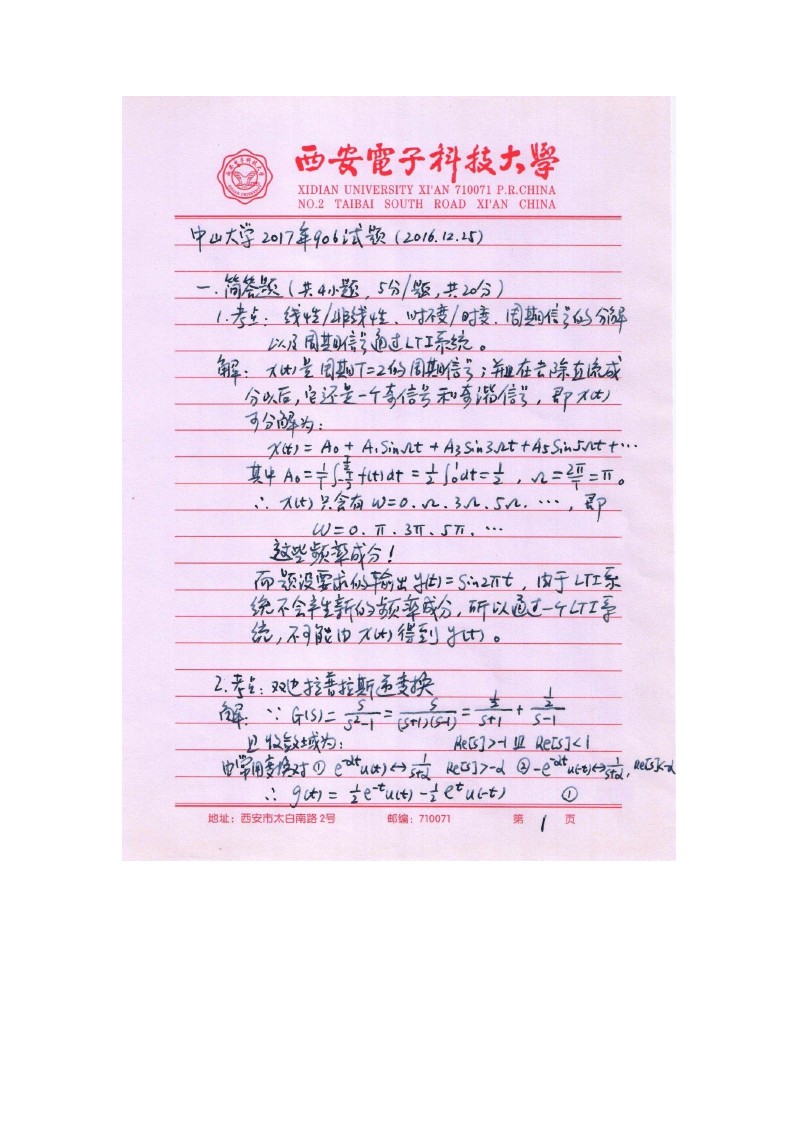 西安電子科技大學
XIDIAN UNIVERSITY XI'AN 710071 P.R.CHINA
NO.2 TAIBAI SOUTH ROAD XI'AN CHINA
中山大学2017年906试题(2016.12.25)
一.简答题(共4小题,5分/题,共20分)
1.考点:线性/非线性、时不变/时变、周期信号的分解
以及周期信号通过LTI系统。
解:x(t)是周期T=2的周期信号;并且在去除直流成
分以后,它还是一个奇信号和奇谐信号,即x(t)
可分解为:
x(t)=A₀+A₁SinΩt+A₃Sin3Ωt+A₅Sin5Ωt+⋯
其中A₀=1/T∫_{-T/2}^{T/2}f(t)dt=1/2∫₀¹dt=1/2,Ω=2π/T=π。
∴x(t)只含有W=0.Ω.3Ω.5Ω.⋯,即
W=0.π.3π.5π.⋯
这些频率成分!
而题设要求的输出y(t)=Sin2πt,由于LTI系
统不会产生新的频率成分,所以通过一个LTI系
统,不可能由x(t)得到y(t)。
2.考点:双边拉普拉斯逆变换
解:∵G(S)=S/(S²-1)=S/((S+1)(S-1))=(1/2)/(S+1)+(1/2)/(S-1)
且收敛域为: Re[S]>-1且Re[S]<1
由常用变换对①e^{-αt}u(t)↔1/(S+α) Re[S]>-α ②-e^{-αt}u(-t)↔1/(S+α),Re[S]<-α
∴g(t)=1/2e^{-t}u(t)-1/2e^{t}u(-t) ①
地址:西安市太白南路2号 邮编:710071 第1页